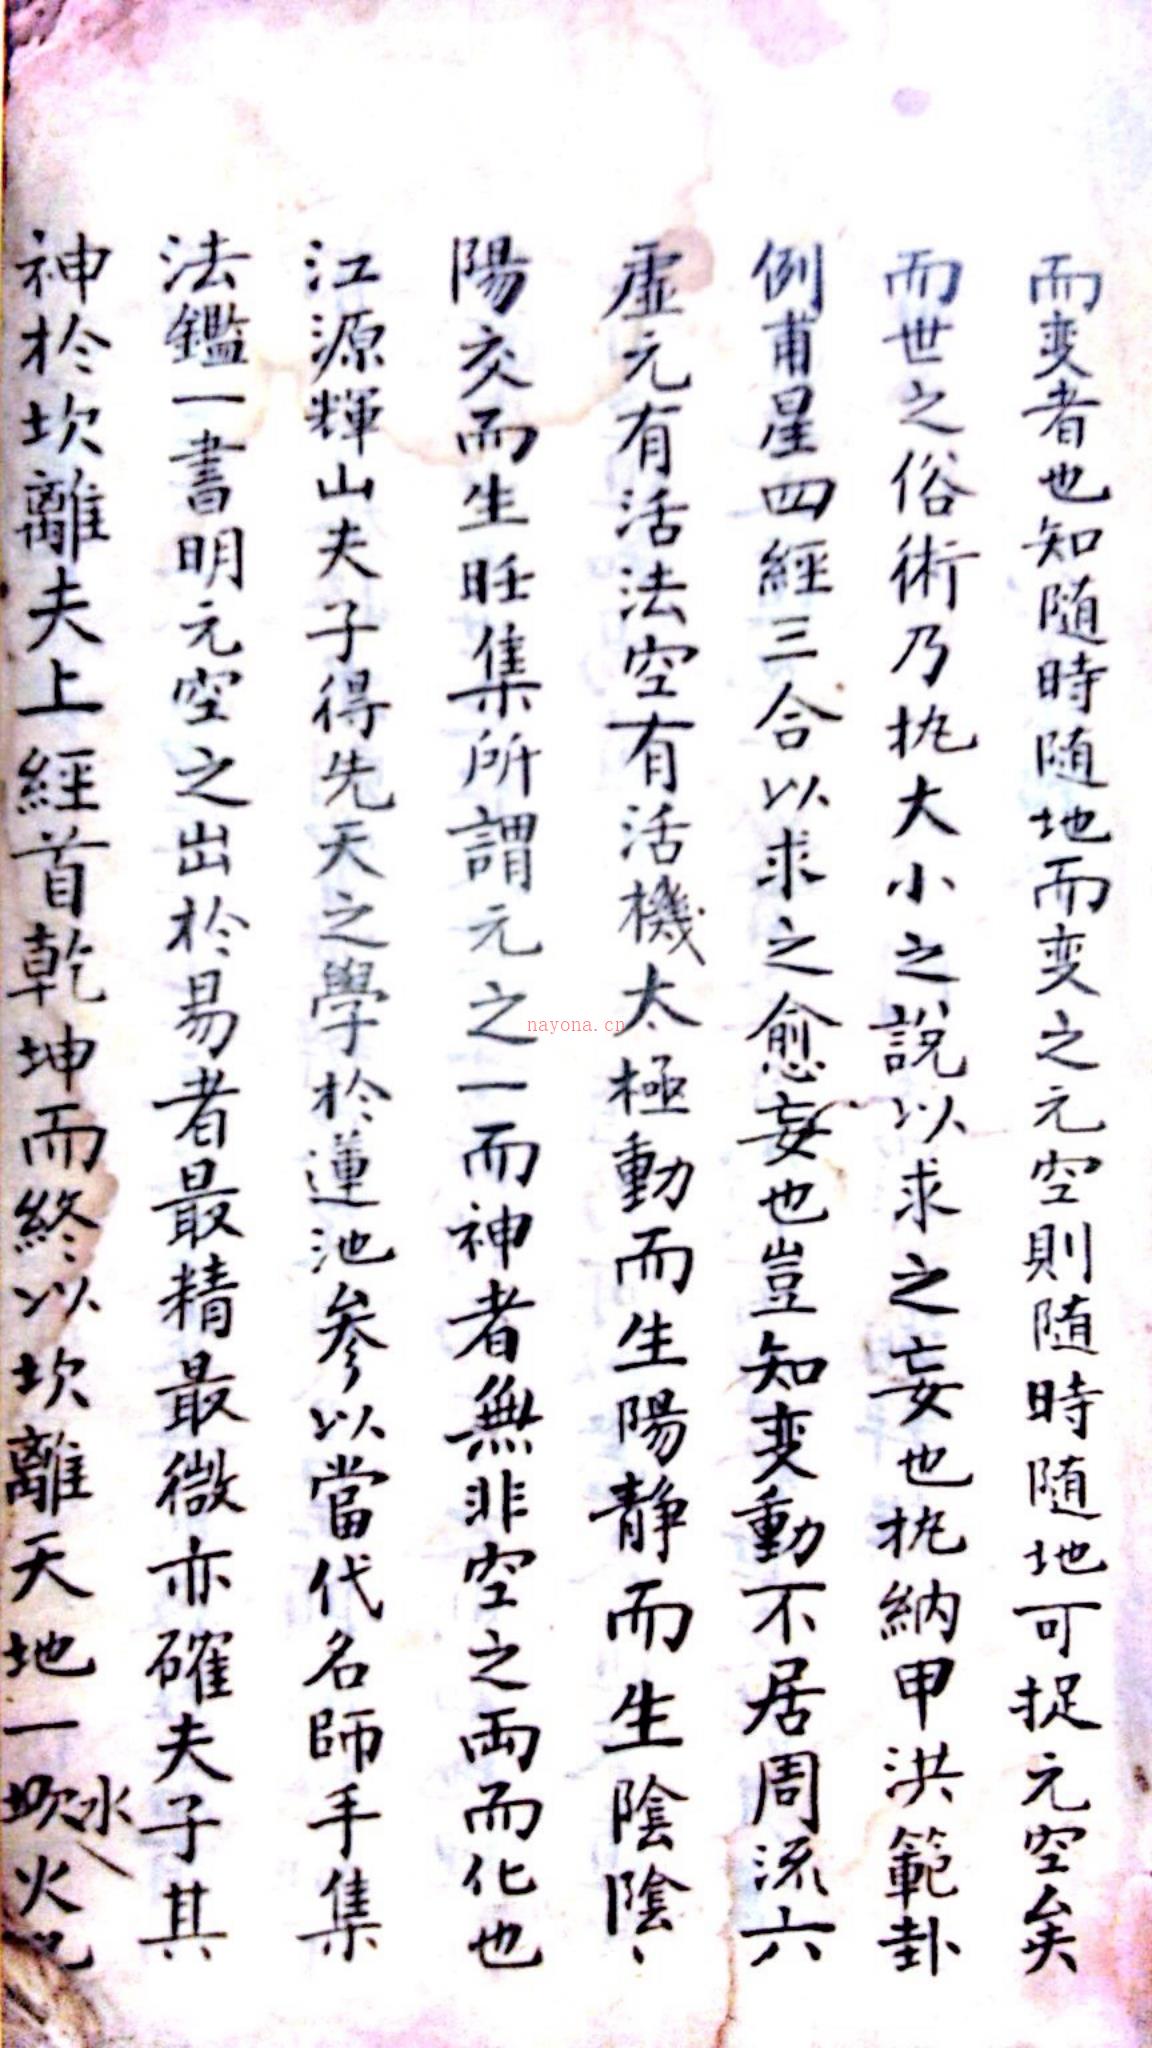 而变者也知随時随地而变之元空則随時随地可捉元空矣
而世之俗術乃执大小之說以求之妄也执納甲洪範卦
例甫星四經三合以求之愈妄也豈知变動不居周流六
虛元有活法空有活機太極動而生陽静而生陰陰、
陽交而生旺集所謂元之一而神者無非空之両而化也
江源輝山夫子得先天之學於蓮池参以當代名師手集
法鑑一書明元空之出於易者最精最微亦確夫子其
神於坎離夫上經首乾坤而終以坎離天地一坎水火
nayona.cn